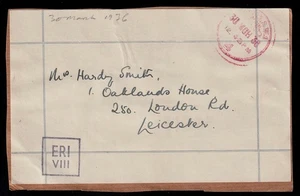 30 March 1936
Mrs. Hardy Smith,
1. Oaklands House
250. London Rd.
Leicester.
ERI
VIII